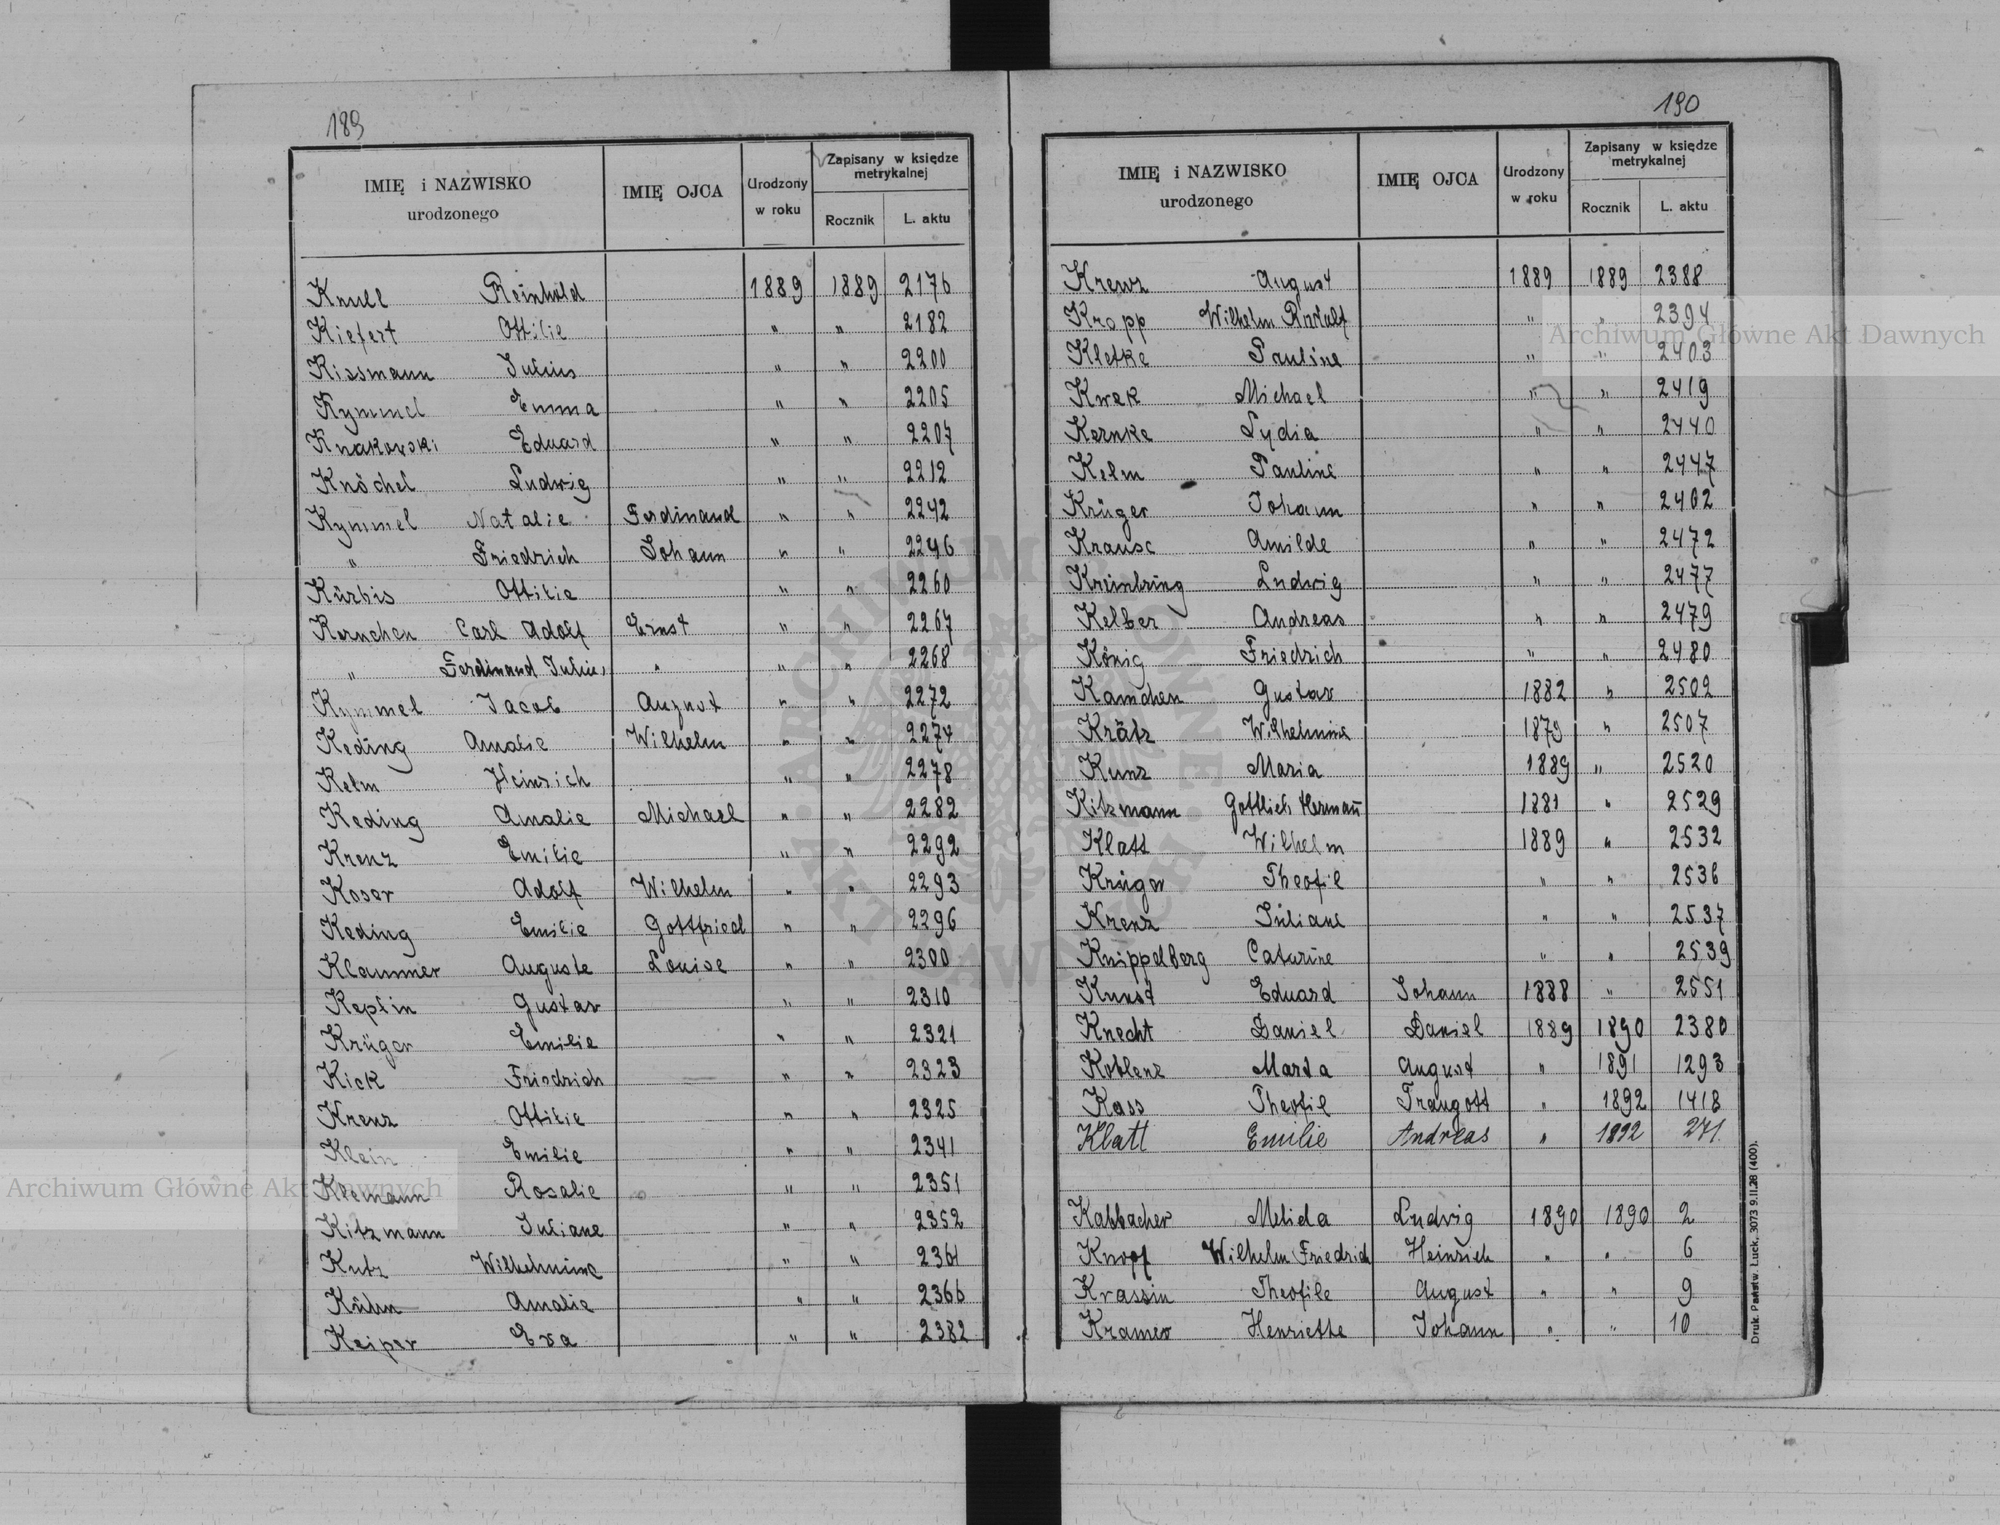 189
IMIĘ i NAZWISKO urodzonego IMIĘ OJCA Urodzony w roku Zapisany w księdze metrykalnej Rocznik L. aktu
Knull Reinhold 1889 1889 2176
Kiefert Ottilie " " 2182
Kissmann Julius " " 2200
Kymmel Emma " " 2205
Knakowski Eduard " " 2207
Knöchel Ludwig " " 2212
Kymmel Natalie Ferdinand " " 2242
" Friedrich Johann " " 2246
Kürbis Ottilie " " 2260
Kernchen Carl Adolf Ernst " " 2267
" Ferdinand Julius " " " 2268
Kymmel Jacob August " " 2272
Keding Amalie Wilhelm " " 2274
Kelm Heinrich " " 2278
Keding Amalie Michael " " 2282
Krenz Emilie " " 2292
Koser Adolf Wilhelm " " 2293
Keding Emilie Gottfried " " 2296
Klammer Auguste Louise " " 2300
Keplin Gustav " " 2310
Krüger Emilie " " 2321
Kick Friedrich " " 2323
Krenz Ottilie " " 2325
Klein Emilie " " 2341
Klemann Rosalie " " 2351
Kitzmann Juliane " " 2352
Kutz Wilhelmine " " 2361
Kühn Amalie " " 2366
Keiper Eva " " 2382
190
IMIĘ i NAZWISKO urodzonego IMIĘ OJCA Urodzony w roku Zapisany w księdze metrykalnej Rocznik L. aktu
Krenz August 1889 1889 2388
Kropp Wilhelm Rudolf " " 2394
Kletke Pauline " " 2403
Kwek Michael " " 2419
Kernke Lydia " " 2440
Kelm Pauline " " 2447
Krüger Johann " " 2462
Krause Amilde " " 2472
Kreinbring Ludwig " " 2477
Kelber Andreas " " 2479
König Friedrich " " 2480
Kamchen Gustav 1882 " 2502
Krätz Wilhelmine 1879 " 2507
Kunz Maria 1889 " 2520
Kitzmann Gottlieb Herman 1881 " 2529
Klatt Wilhelm 1889 " 2532
Krüger Theofil " " 2536
Krenz Juliane " " 2537
Knippelberg Catarine " " 2539
Kunst Eduard Johann 1888 " 2551
Knecht Daniel Daniel 1889 1890 2380
Koblenz Marta August " 1891 1293
Kass Theofil Traugott " 1892 1418
Klatt Emilie Andreas " 1892 271
Kabbacher Melida Ludwig 1890 1890 2
Knopf Wilhelm Friedrich Heinrich " " 6
Krassin Theofile August " " 9
Kramer Henriette Johann " " 10
Druk. Państw. Łuck, 3073 9.II.28 (400).
Archiwum Główne Akt Dawnych
Archiwum Główne Akt Dawnych
ARCHIWUM GŁÓWNE AKT DAWNYCH